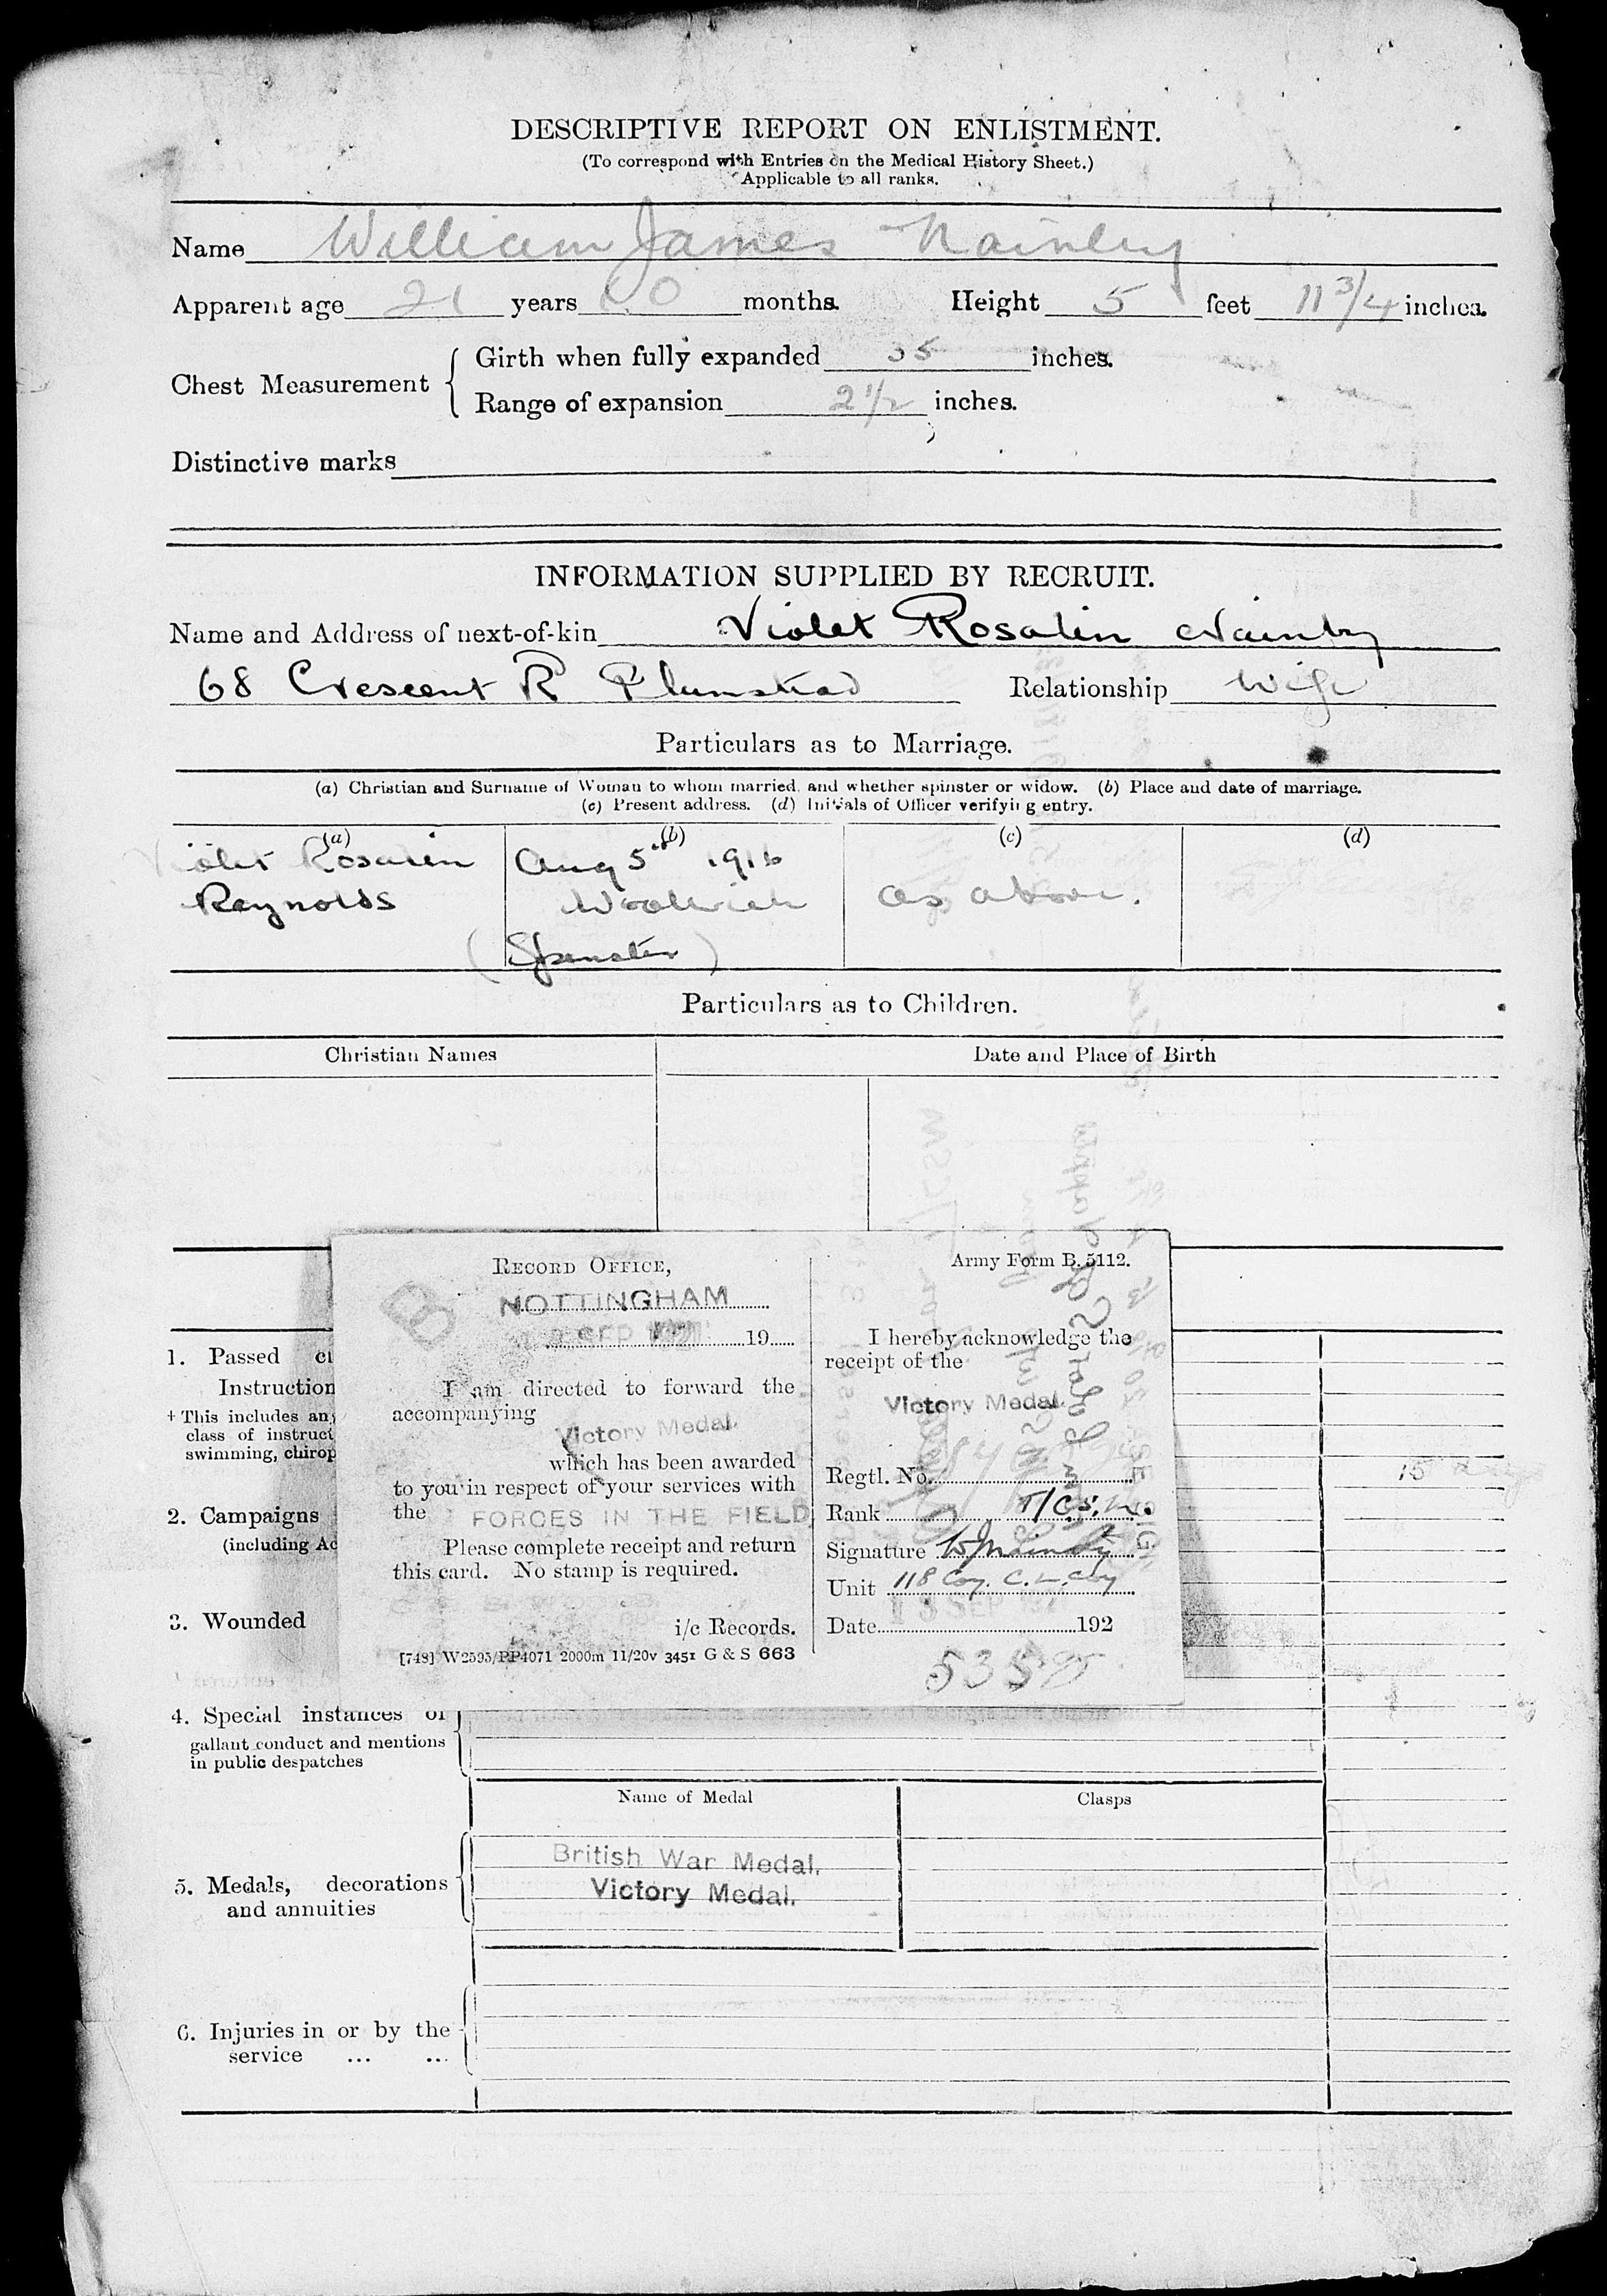 DESCRIPTIVE REPORT ON ENLISTMENT.
(To correspond with Entries on the Medical History Sheet.)
Applicable to all ranks.
Name William James Nainby
Apparent age 21 years 10 months. Height 5 feet 11 3/4 inches.
Chest Measurement { Girth when fully expanded 35 inches.
Range of expansion 2 1/2 inches.
Distinctive marks
INFORMATION SUPPLIED BY RECRUIT.
Name and Address of next-of-kin Violet Rosalin Nainby
68 Crescent R Plumstead Relationship Wife
Particulars as to Marriage.
(a) Christian and Surname of Woman to whom married, and whether spinster or widow. (b) Place and date of marriage.
(c) Present address. (d) Initials of Officer verifying entry.
(a) (b) (c) (d)
Violet Rosalin Aug 5th 1916
Reynolds Woolwich as above.
(Spinster)
Particulars as to Children.
Christian Names Date and Place of Birth
RECORD OFFICE,
NOTTINGHAM
SEP 19
I am directed to forward the
accompanying
Victory Medal.
which has been awarded
to you in respect of your services with
the FORCES IN THE FIELD
Please complete receipt and return
this card. No stamp is required.
i/c Records.
[748] W2595/PP4071 2000m 11/20v 3451 G & S 663
Army Form B. 5112.
I hereby acknowledge the
receipt of the
Victory Medal.
Regtl. No.
Rank T/C.S.M.
Signature WJNainby
Unit 118 Coy. C.L. Coy
13 SEP
Date 192
1. Passed
Instruction
+ This includes any
class of instruct
swimming, chirop
15 days
2. Campaigns
(including Ac
3. Wounded
4. Special instances of
gallant conduct and mentions
in public despatches
Name of Medal Clasps
British War Medal.
Victory Medal.
5. Medals, decorations
and annuities
6. Injuries in or by the
service ... ...